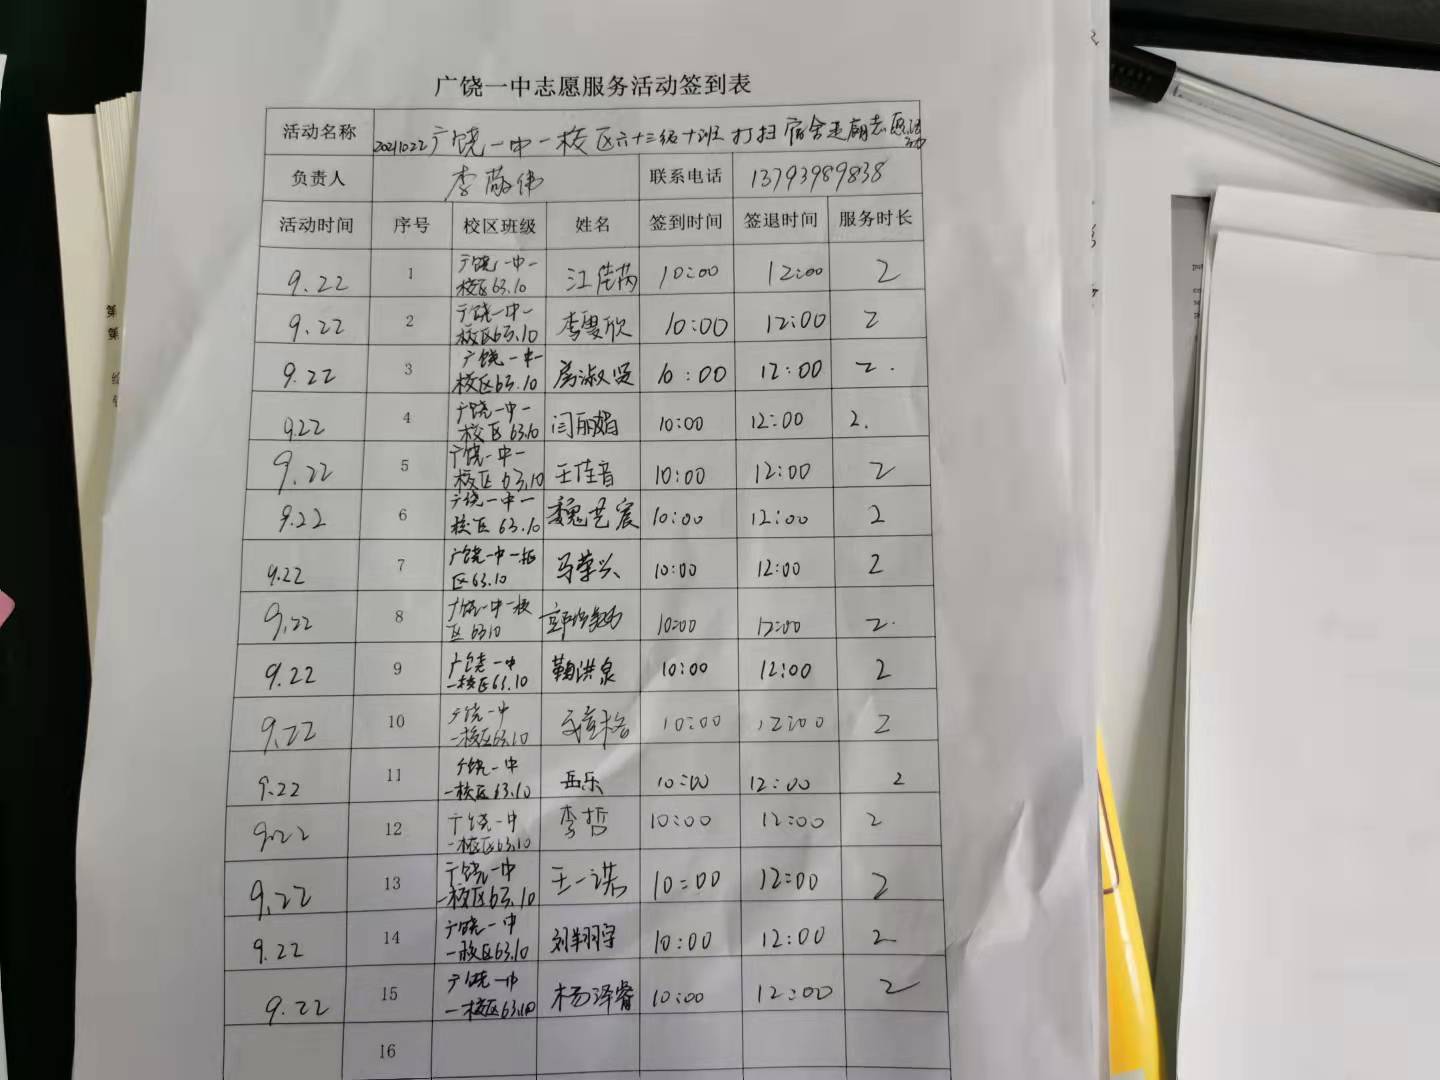 广饶一中志愿服务活动签到表
活动名称 20211022广饶一中一校区六十三级十班打扫宿舍走廊志愿活动
负责人 李敬伟 联系电话 13793989838
活动时间 序号 校区班级 姓名 签到时间 签退时间 服务时长
9.22 1 广饶一中一校区63.10 江 10:00 12:00 2
9.22 2 广饶一中一校区63.10 李雯欣 10:00 12:00 2
9.22 3 广饶一中一校区63.10 房淑贤 10:00 12:00 2.
9.22 4 广饶一中一校区63.10 闫丽娟 10:00 12:00 2.
9.22 5 广饶一中一校区63.10 王佳音 10:00 12:00 2
9.22 6 广饶一中一校区63.10 魏艺宸 10:00 12:00 2
9.22 7 广饶一中一校区63.10 马荣兴 10:00 12:00 2
9.22 8 广饶一中一校区63.10 10:00 12:00 2.
9.22 9 广饶一中一校区63.10 鞠洪泉 10:00 12:00 2
9.22 10 广饶一中一校区63.10 10:00 12:00 2
9.22 11 广饶一中一校区63.10 岳乐 10:00 12:00 2
9.22 12 广饶一中一校区63.10 李哲 10:00 12:00 2
9.22 13 广饶一中一校区63.10 王一诺 10:00 12:00 2
9.22 14 广饶一中一校区63.10 刘翔宇 10:00 12:00 2
9.22 15 广饶一中一校区63.10 杨泽睿 10:00 12:00 2
16